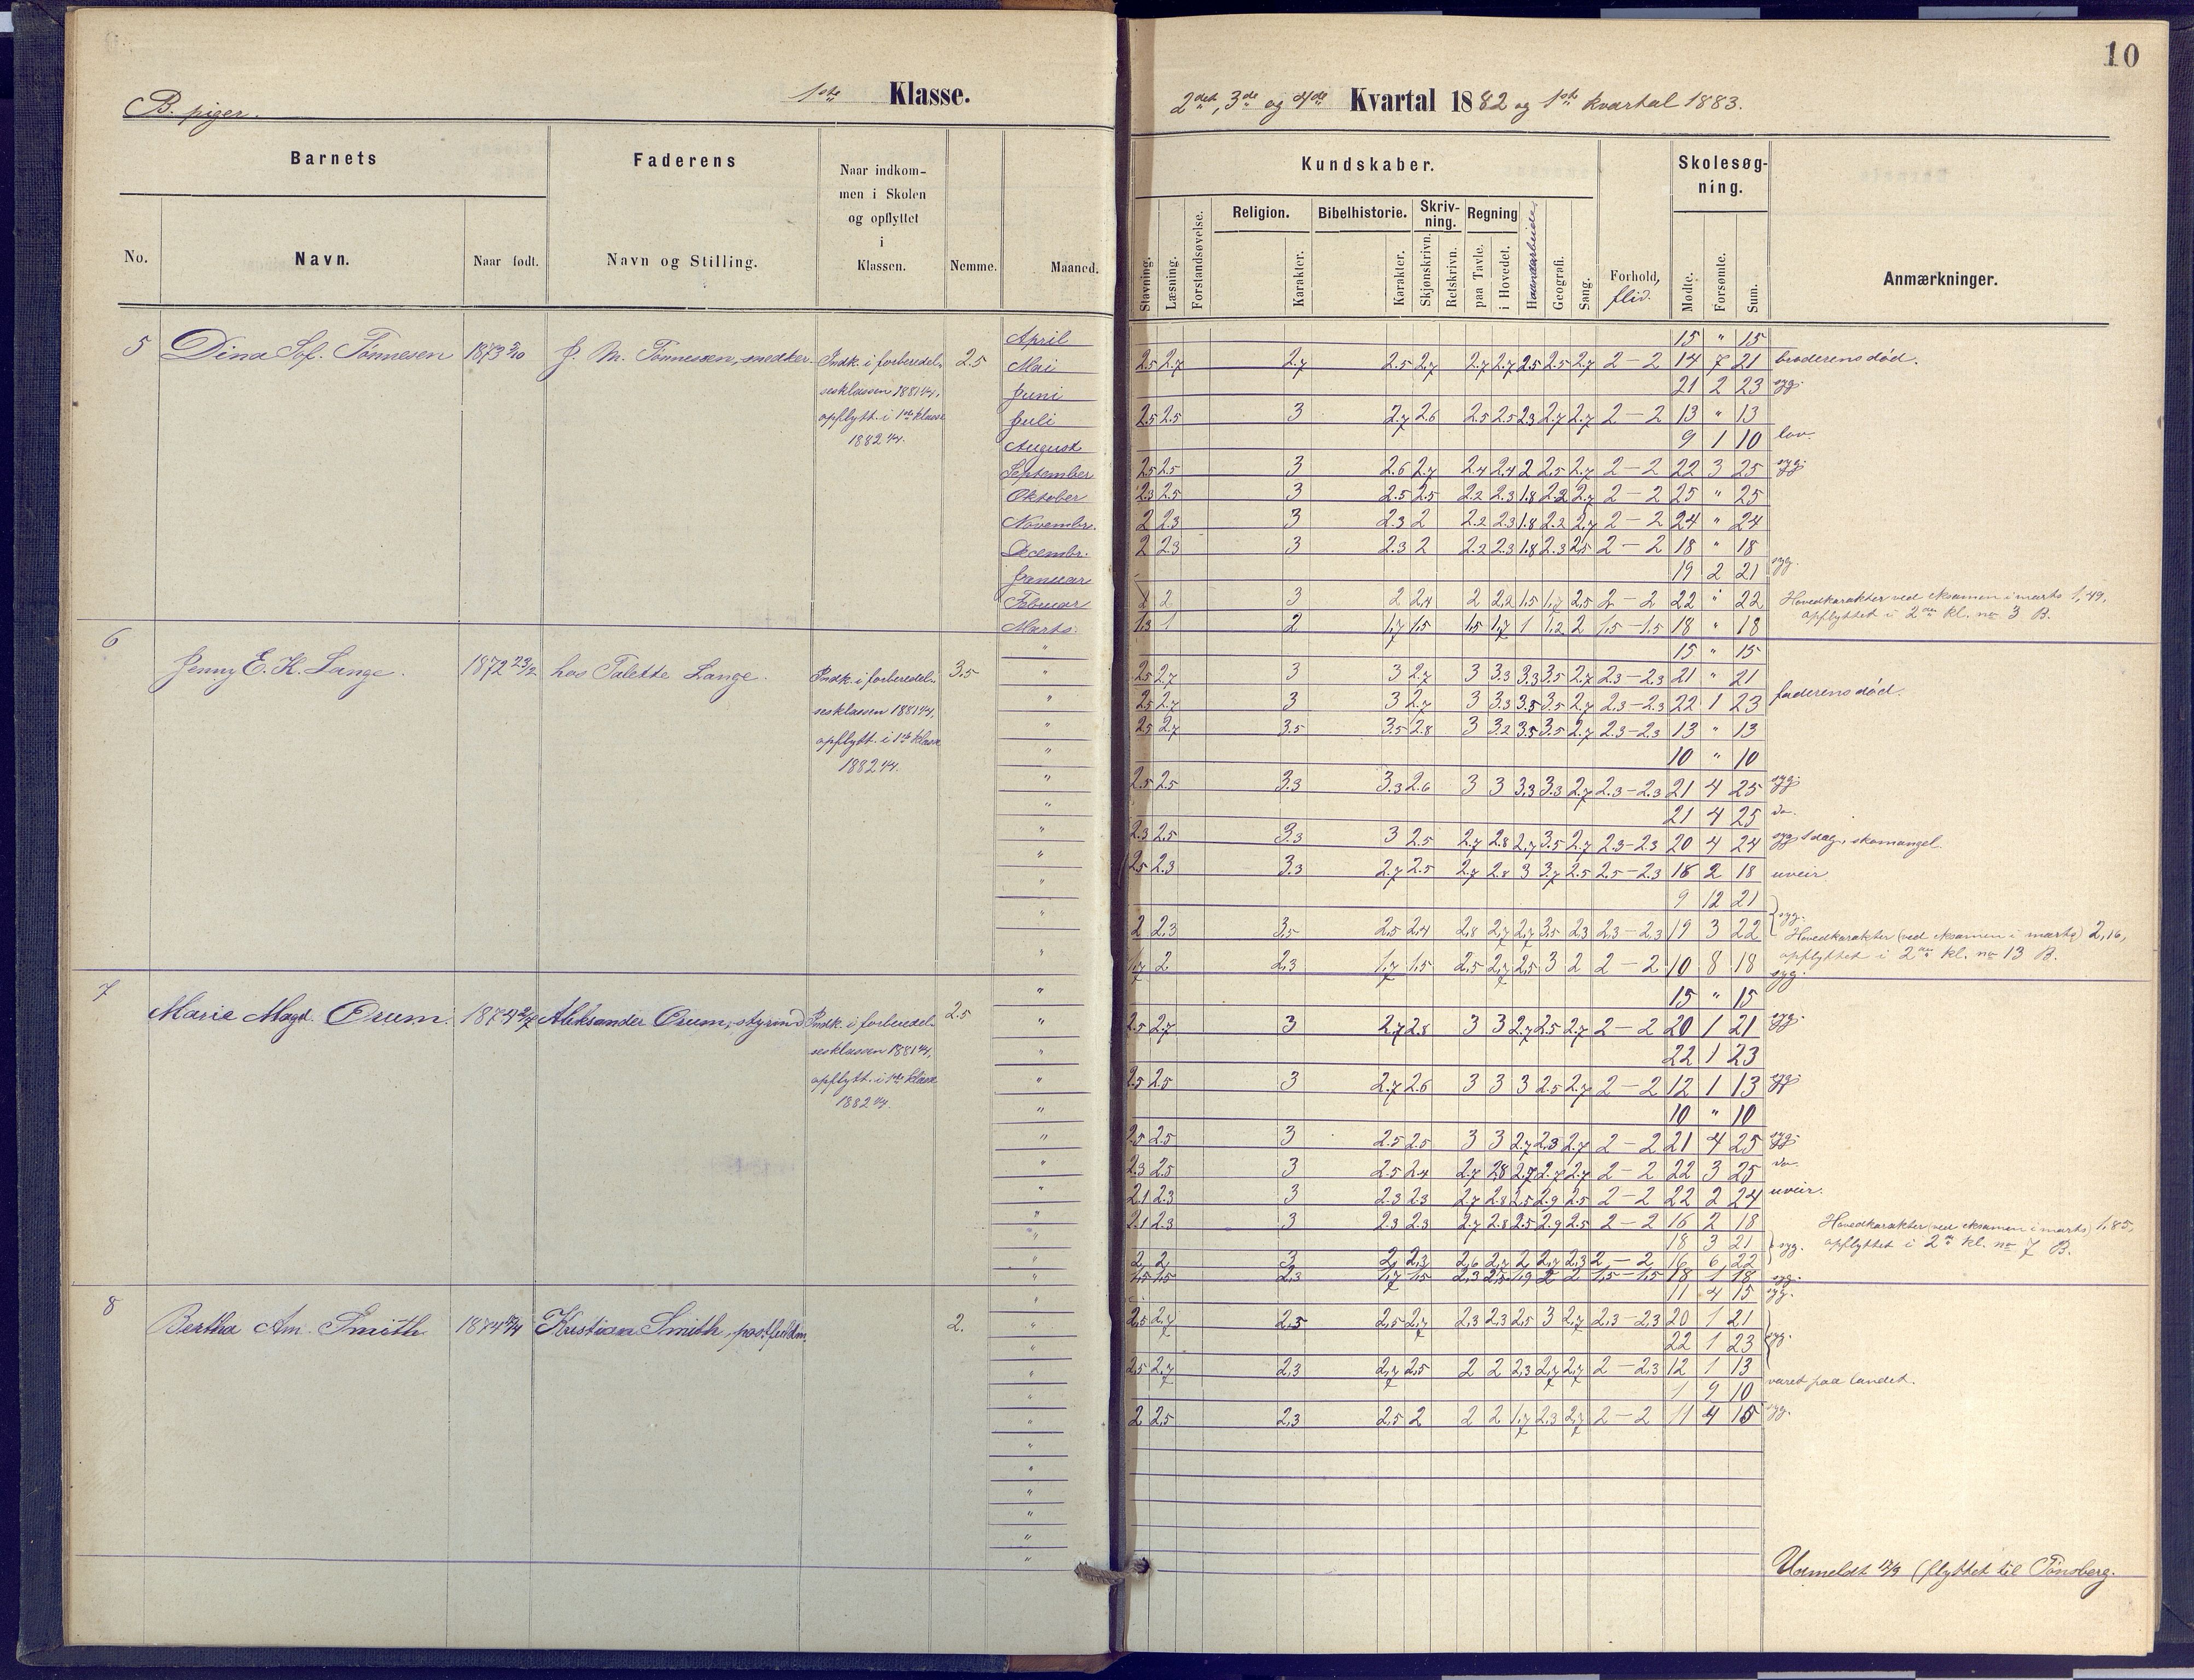 10
B. piger.
1ste Klasse.
2det, 3de og 4de Kvartal 1882 og 1ste kvartal 1883.
Barnets
Faderens
Naar indkom-
men i Skolen
og opflyttet
i
Klassen.
No.
Navn.
Naar født.
Navn og Stilling.
Nemme.
Maaned.
Kundskaber.
Skolesøg-
ning.
Stavning.
Læsning.
Forstandsøvelse.
Religion.
Karakter.
Bibelhistorie.
Karakter.
Skriv-
ning.
Skjønskrivn.
Retskrivn.
Regning
paa Tavle.
i Hovedet.
Haandarbeide
Geografi.
Sang.
Forhold,
flid.
Mødte.
Forsømte.
Sum.
Anmærkninger.
5 Dina Sof. Tønnesen 1873 J. M. Tønnessen, snedker. Indk. i forberedel- 2.5
sesklassen 1881 1/4,
opflytt. i 1ste klasse
1882 1/4.
April 15 " 15
Mai 2.5 2.7 2.7 2.5 2.7 2.7 2.7 2.5 2.5 2.7 2 – 2 14 7 21 broderens død.
Juni 21 2 23 syg.
Juli 2.5 2.5 3 2.7 2.6 2.5 2.5 2.3 2.7 2.7 2 – 2 13 " 13
August 9 1 10 lov.
September 2.5 2.5 3 2.6 2.7 2.4 2.4 2 2.5 2.7 2 – 2 22 3 25 syg.
Oktober 2.3 2.5 3 2.5 2.5 2.2 2.3 1.8 2.2 2.7 2 – 2 25 " 25
Novembr. 2 2.3 3 2.3 2 2.2 2.3 1.8 2.2 2.7 2 – 2 24 " 24
Decembr. 2 2.3 3 2.3 2 2.2 2.3 1.8 2.3 2.5 2 – 2 18 " 18
Januar 19 2 21 syg.
Februar 2 2 3 2 2,4 2 2,2 1,5 1,7 2,5 2 – 2 22 " 22 Hovedkarakter ved eksamen i marts 1,49,
opflyttet i 2den kl. no 3 B.
Marts. 1,3 1 2 1,7 1,5 1,5 1,7 1 1,2 2 1,5 – 1,5 18 " 18
6 Jenny E. K. Lange. 1872 23/2 hos Talette Lange. Indk. i forberedel- 3.5
sesklassen 1881 1/4,
opflytt. i 1ste klasse
1882 1/4.
" 15 " 15
" 2.5 2.7 3 3 2.7 3 3.3 3.3 3.5 2.7 2.3 – 2.3 21 " 21
" 2.5 2.7 3 3 2.7 3 3.3 3.5 3.5 2.7 2.3 – 2.3 22 1 23 faderens død.
" 2.5 2.7 3.5 3.5 2.8 3 3.2 3.5 3.5 2.7 2.3 – 2.3 13 " 13
" 10 " 10
" 2.5 2.5 3.3 3.3 2.6 3 3 3.3 3.3 2.7 2.3 – 2.3 21 4 25 syg.
" 21 4 25 do.
" 2.3 2.5 3.3 3 2.5 2.7 2.8 2.7 3.5 2.7 2.3 – 2.3 20 4 24 syg 1 dag, skomangel.
" 2.5 2.3 3.3 2.7 2.5 2.7 2.8 3 3.7 2.5 2.5 – 2.3 16 2 18 uveir.
" 9 12 21
" 2 2,3 3,5 2,5 2,4 2,8 2,7 2,7 3,5 2,3 2,3 – 2,3 19 3 22 syg.
Hovedkarakter (ved eksamen i marts) 2,16,
opflyttet i 2den kl. no 13 B.
" 1,7 2 2,3 1,7 1,5 2,5 2,7 2,5 3 2 2 – 2 10 8 18 syg.
7 Marie Magd. Orum. 1874 Aleksander Orum, styrmd Indk. i forberedel- 2.5
sesklassen 1881 1/4,
opflytt. i 1ste klasse
1882 1/4.
" 15 " 15
" 2.5 2.7 3 2.7 2.8 3 3 2.7 2.5 2.7 2 – 2 20 1 21 syg.
" 22 1 23
" 2.5 2.5 3 2.7 2.6 3 3 3 2.5 2.7 2 – 2 12 1 13 syg.
" 10 " 10
" 2.5 2.5 3 2.5 2.5 3 3 2.7 2.3 2.7 2 – 2 21 4 25 syg.
" 2.3 2.5 3 2.5 2.4 2.7 2.8 2.7 2.7 2.7 2 – 2 22 3 25 do.
" 2.1 2.3 3 2.3 2.3 2.7 2.8 2.5 2.9 2.5 2 – 2 22 2 24 uveir.
" 2.1 2.3 3 2.3 2.3 2.7 2.8 2.5 2.9 2.5 2 – 2 16 2 18
Hovedkarakter (ved eksamen i marts) 1,85,
opflyttet i 2den kl. no 7 B.
" 18 3 21 syg.
" 2 2 3 2 2,3 2,6 2,7 2 2,7 2,3 2 – 2 16 6 22
" 1,5 1,5 2,3 1,7 1,5 2,3 2,5 1,9 2 2 1,5 – 1,5 18 1 18 syg.
8 Bertha Am. Smith 1874 Kristian Smith, postfuldm. 2.
" 11 4 15 syg.
" 2,5 2,7 2,5 2,5 2,7 2,3 2,3 2,5 3 2,7 2,3 – 2,3 20 1 21
" 22 1 23 syg.
" 2,5 2,7 2,3 2,7 2,5 2 2 2,3 2,7 2,7 2 – 2,3 12 1 13
" 1 9 10 været paa landet.
" 2 2,5 2,3 2,5 2 2 2 1,7 2,3 2,7 2 – 2 11 4 15 syg.
"
"
"
"
"
"
Udmeldt (flyttet til Tønsberg.